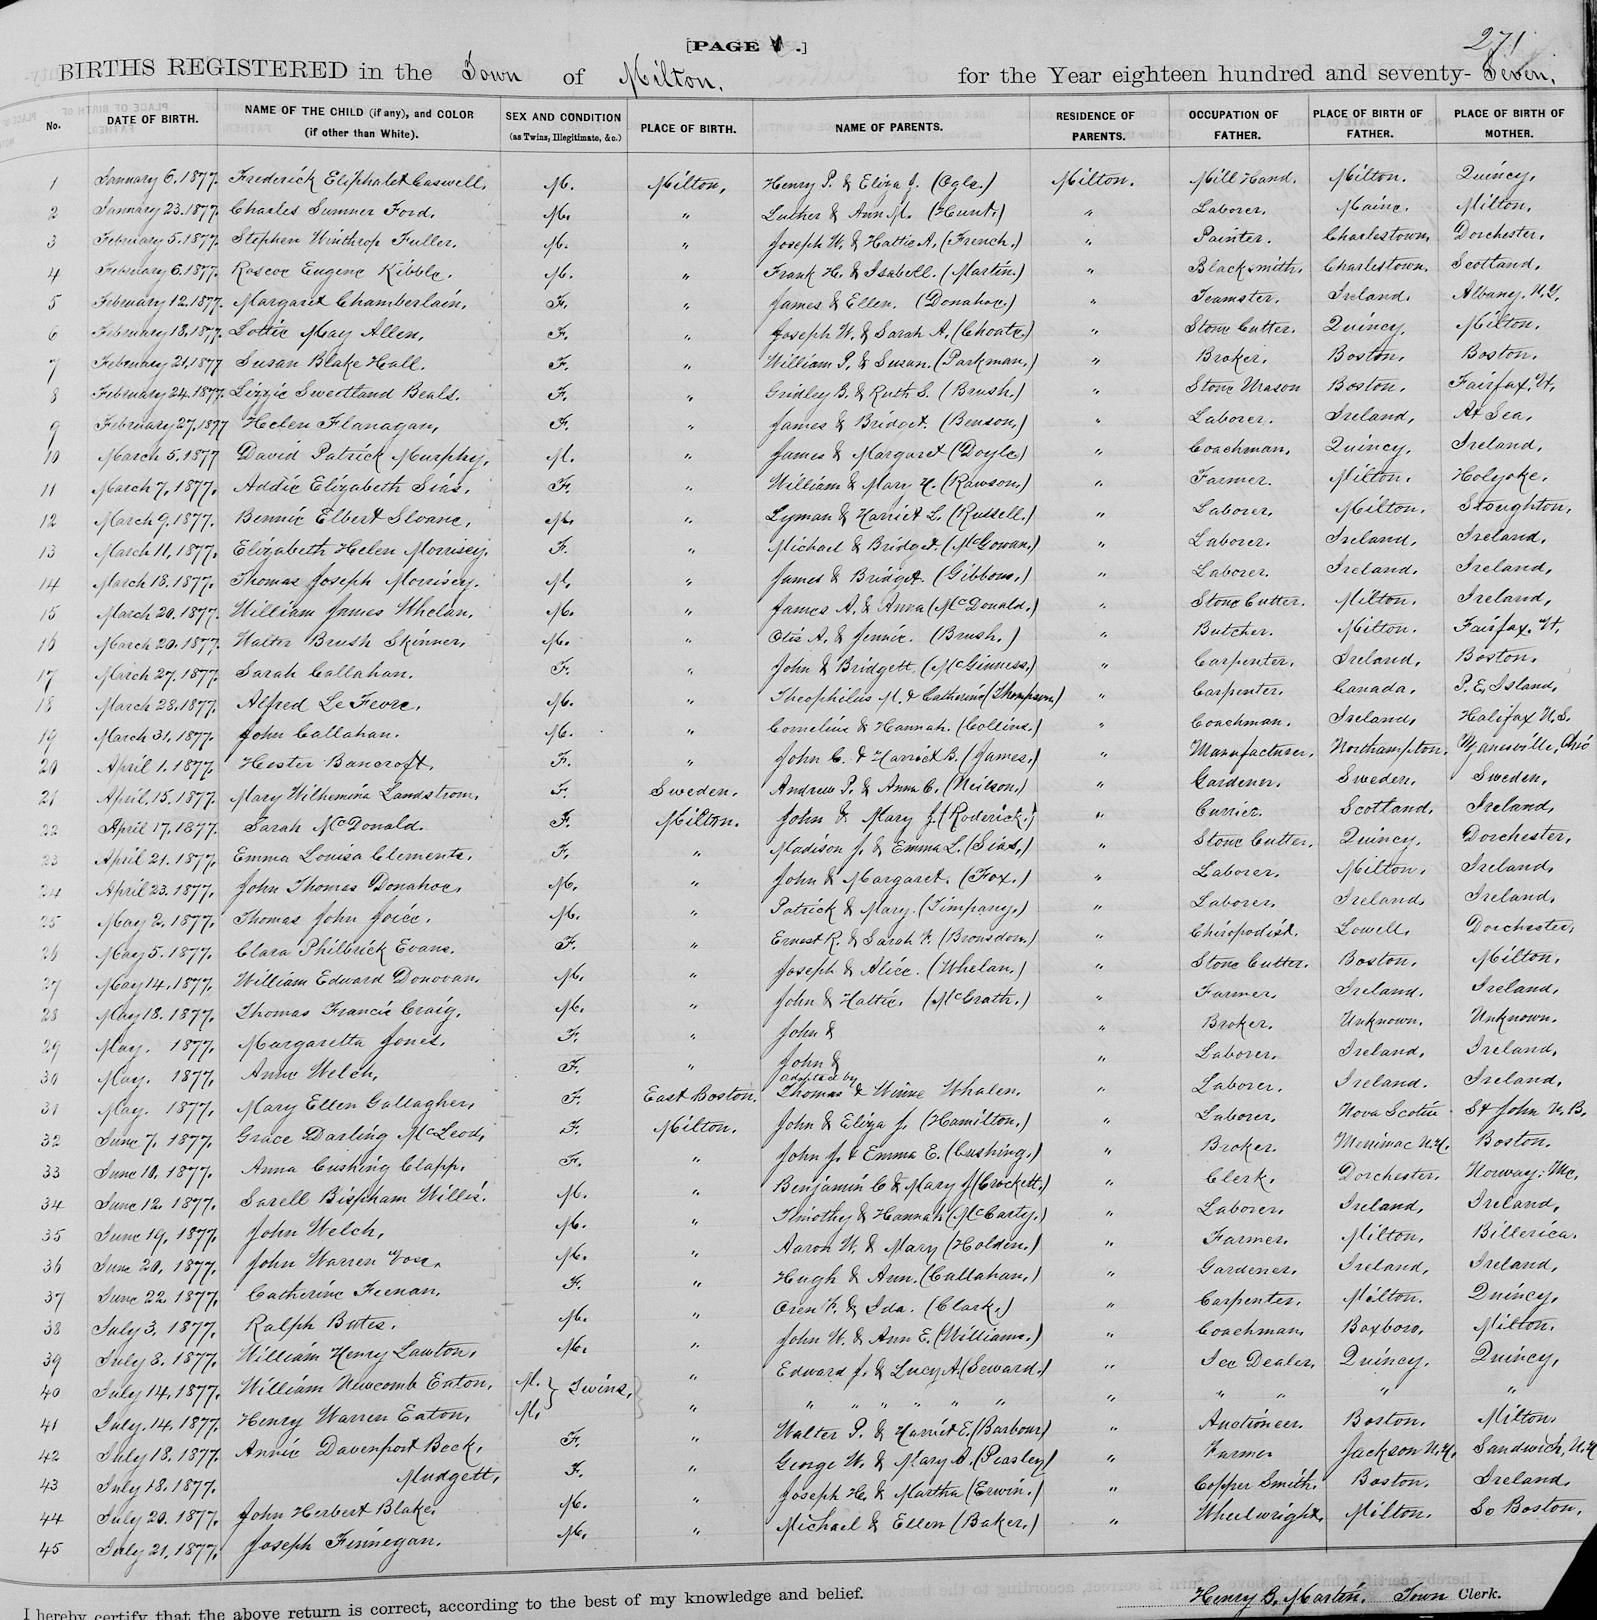 271
[PAGE 1.]
BIRTHS REGISTERED in the Town of Milton. for the Year eighteen hundred and seventy- Seven.
No. DATE OF BIRTH. NAME OF THE CHILD (if any), and COLOR (if other than White). SEX AND CONDITION (as Twins, Illegitimate, &c.) PLACE OF BIRTH. NAME OF PARENTS. RESIDENCE OF PARENTS. OCCUPATION OF FATHER. PLACE OF BIRTH OF FATHER. PLACE OF BIRTH OF MOTHER.
1 January 6. 1877. Frederick Eliphalet Caswell. M. Milton. Henry P. & Eliza J. (Ogle.) Milton. Mill Hand. Milton. Quincy.
2 January 23. 1877. Charles Sumner Ford. M. " Luther & Ann M. (Hunt.) " Laborer. Maine. Milton.
3 February 5. 1877. Stephen Winthrop Fuller. M. " Joseph W. & Hattie A. (French.) " Painter. Charlestown. Dorchester.
4 February 6. 1877. Roscoe Eugene Kibble. M. " Frank H. & Isabell. (Martin.) " Blacksmith. Charlestown. Scotland.
5 February 12. 1877. Margaret Chamberlain. F. " James & Ellen. (Donahoe.) " Teamster. Ireland. Albany. N.Y.
6 February 18. 1877. Lottie May Allen. F. " Joseph W. & Sarah A. (Choate) " Stone Cutter. Quincy. Milton.
7 February 21. 1877 Susan Blake Hall. F. " William P. & Susan. (Parkman.) " Broker. Boston. Boston.
8 February 24. 1877. Lizzie Sweetland Beals. F. " Gridley B. & Ruth S. (Brush.) " Stone Mason Boston. Fairfax. Vt.
9 February 27. 1877 Helen Flanagan. F. " James & Bridget. (Benson.) " Laborer. Ireland. At Sea.
10 March 5. 1877 David Patrick Murphy. M. " James & Margaret (Doyle) " Coachman. Quincy. Ireland.
11 March 7. 1877. Addie Elizabeth Sias. F. " William & Mary H. (Rawson.) " Farmer. Milton. Holyoke.
12 March 9. 1877. Bennie Elbert Sloane. M. " Lyman & Harriet L. (Russell.) " Laborer. Milton. Stoughton.
13 March 11. 1877. Elizabeth Helen Morrisey. F. " Michael & Bridget. (McGowan.) " Laborer. Ireland. Ireland.
14 March 18. 1877. Thomas Joseph Morrisey. M. " James & Bridget. (Gibbons.) " Laborer. Ireland. Ireland.
15 March 20. 1877. William James Whelan. M. " James A. & Anna (McDonald.) " Stone Cutter. Milton. Ireland.
16 March 20. 1877. Walter Brush Skinner. M. " Otis A. & Jennie. (Brush.) " Butcher. Milton. Fairfax. Vt.
17 March 27. 1877. Sarah Callahan. F. " John & Bridgett (McGinness.) " Carpenter. Ireland. Boston.
18 March 28. 1877. Alfred LeFevre. M. " Theophilus M. & Catherine (Thompson) " Carpenter. Canada. P. E. Island.
19 March 31. 1877. John Callahan. M. " Cornelius & Hannah. (Collins.) " Coachman. Ireland. Halifax N.S.
20 April 1. 1877. Hester Bancroft. F. " John C. & Harriet B. (James.) " Manufacturer. Northampton. Zanesville, Ohio
21 April 15. 1877. Mary Wilhemina Landstrom. F. Sweden. Andrew P. & Anna C. (Neilson.) " Gardener. Sweden. Sweden.
22 April 17. 1877. Sarah McDonald. F. Milton. John & Mary J. (Roderick.) " Currier. Scotland. Ireland.
23 April 21. 1877. Emma Louisa Clements. F. " Madison J. & Emma L. (Sias.) " Stone Cutter. Quincy. Dorchester.
24 April 23. 1877. John Thomas Donahoe. M. " John & Margaret. (Fox.) " Laborer. Milton. Ireland.
25 May 2. 1877. Thomas John Joice. M. " Patrick & Mary. (Timpany.) " Laborer. Ireland. Ireland.
26 May 5. 1877. Clara Philbrick Evans. F. " Ernest R. & Sarah F. (Bronsdon.) " Chiropodist. Lowell. Dorchester.
27 May 14. 1877. William Edward Donovan. M. " Joseph & Alice. (Whelan.) " Stone Cutter. Boston. Milton.
28 May 18. 1877. Thomas Francis Craig. M. " John & Hattie. (McGrath.) " Farmer. Ireland. Ireland.
29 May. 1877. Margaretta Jones. F. " John & " Broker. Unknown. Unknown.
30 May. 1877. Annie Welch. F. " John & " Laborer. Ireland. Ireland.
31 May. 1877. Mary Ellen Gallagher. F. East Boston. adopted by Thomas & Winne Whalen. " Laborer. Ireland. Ireland.
32 June 7. 1877. Grace Darling McLeod. F. Milton. John & Eliza J. (Hamilton.) " Laborer. Nova Scotia St John N.B.
33 June 10. 1877. Anna Cushing Clapp. F. " John J. & Emma E. (Cushing.) " Broker. Merrimac N.H. Boston.
34 June 12. 1877. Sarell Bispham Willis. M. " Benjamin C & Mary J (Crockett.) " Clerk. Dorchester. Norway. Me.
35 June 19. 1877. John Welch. M. " Timothy & Hannah (McCarty.) " Laborer. Ireland. Ireland.
36 June 20. 1877. John Warren Vose. M. " Aaron W. & Mary (Holden.) " Farmer. Milton. Billerica.
37 June 22. 1877. Catherine Feenan. F. " Hugh & Ann. (Callahan.) " Gardener. Ireland. Ireland.
38 July 3. 1877. Ralph Bates. M. " Oren F. & Ida. (Clark.) " Carpenter. Milton. Quincy.
39 July 8. 1877. William Henry Lawton. M. " John W. & Ann E. (Williams.) " Coachman. Boxboro. Milton.
40 July 14. 1877. William Newcomb Eaton. M. } Twins. " Edward J. & Lucy A (Seward.) " Ice Dealer. Quincy. Quincy.
41 July. 14. 1877. Henry Warren Eaton. M. " " " " " " " " " " " " "
42 July 18. 1877. Annie Davenport Bock. F. " Walter P. & Harriet E. (Barbour) " Auctioneer. Boston. Milton.
43 July 18. 1877. Mudgett. F. " George W. & Mary A. (Peasley) " Farmer Jackson N.H. Sandwich, N.H
44 July 20. 1877. John Herbert Blake. M. " Joseph H. & Martha (Erwin.) " Copper Smith. Boston. Ireland.
45 July 21. 1877. Joseph Finnegan. M. " Michael & Ellen (Baker.) " Wheelwright. Milton. So Boston.
I hereby certify that the above return is correct, according to the best of my knowledge and belief.
Henry B. Martin. Town Clerk.